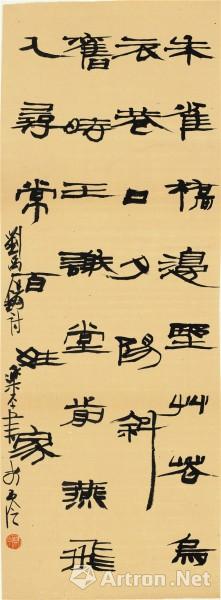 朱雀橋邊野艸花烏
衣巷口夕陽斜
舊時王謝堂前燕飛
入尋常百姓家
劉禹錫詩
Artron.Net